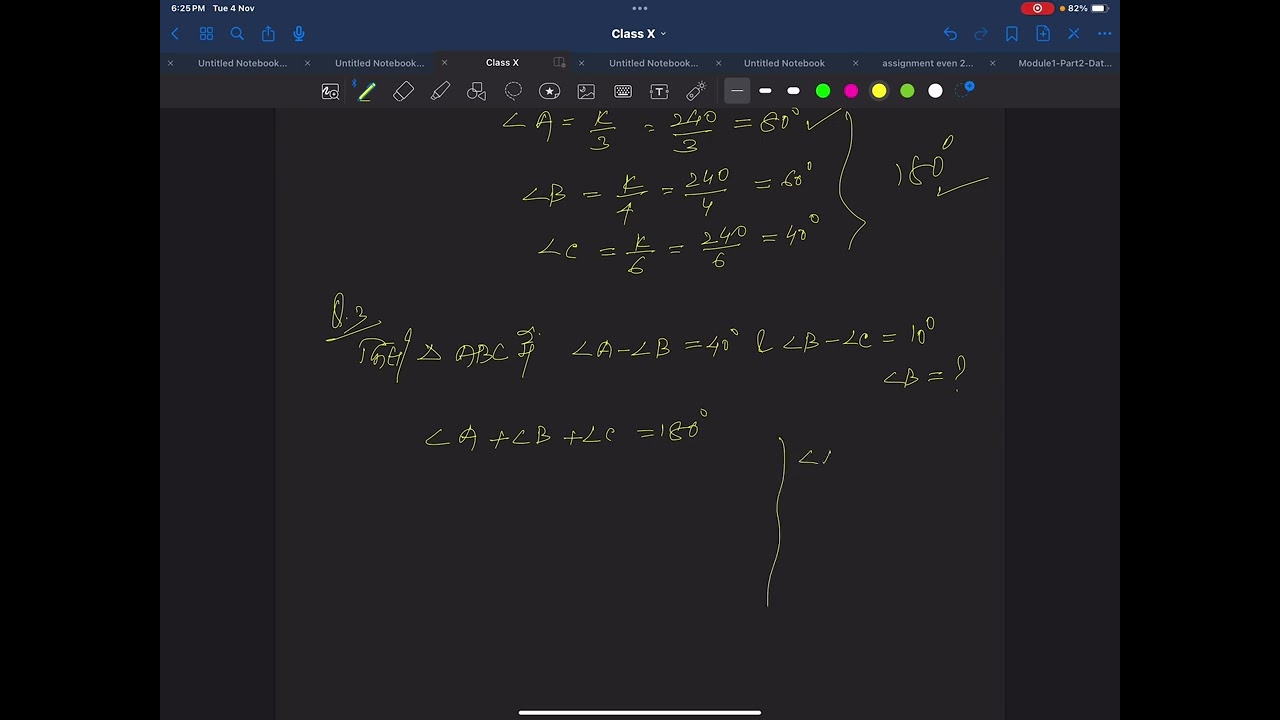 6:25 PM Tue 4 Nov
82%
Class X
Untitled Notebook...
Untitled Notebook...
Class X
Untitled Notebook...
Untitled Notebook
assignment even 2...
Module1-Part2-Dat...
∠A = K/3 = 240/3 = 80° ✓
180° ✓
∠B = K/4 = 240/4 = 60°
∠C = K/6 = 240/6 = 40°
Q.3
किसी △ ABC में ∠A-∠B = 40° & ∠B-∠C = 10°
∠B = ?
∠A +∠B +∠C = 180°